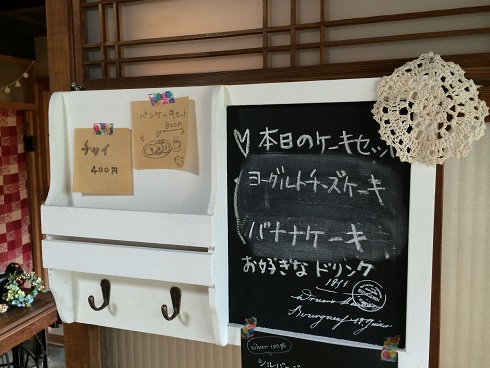 パンケーキセット
800円
チャイ
400円
♡本日のケーキセット
ヨーグルトチーズケーキ
バナナケーキ
お好きなドリンク
1891
silver 100%